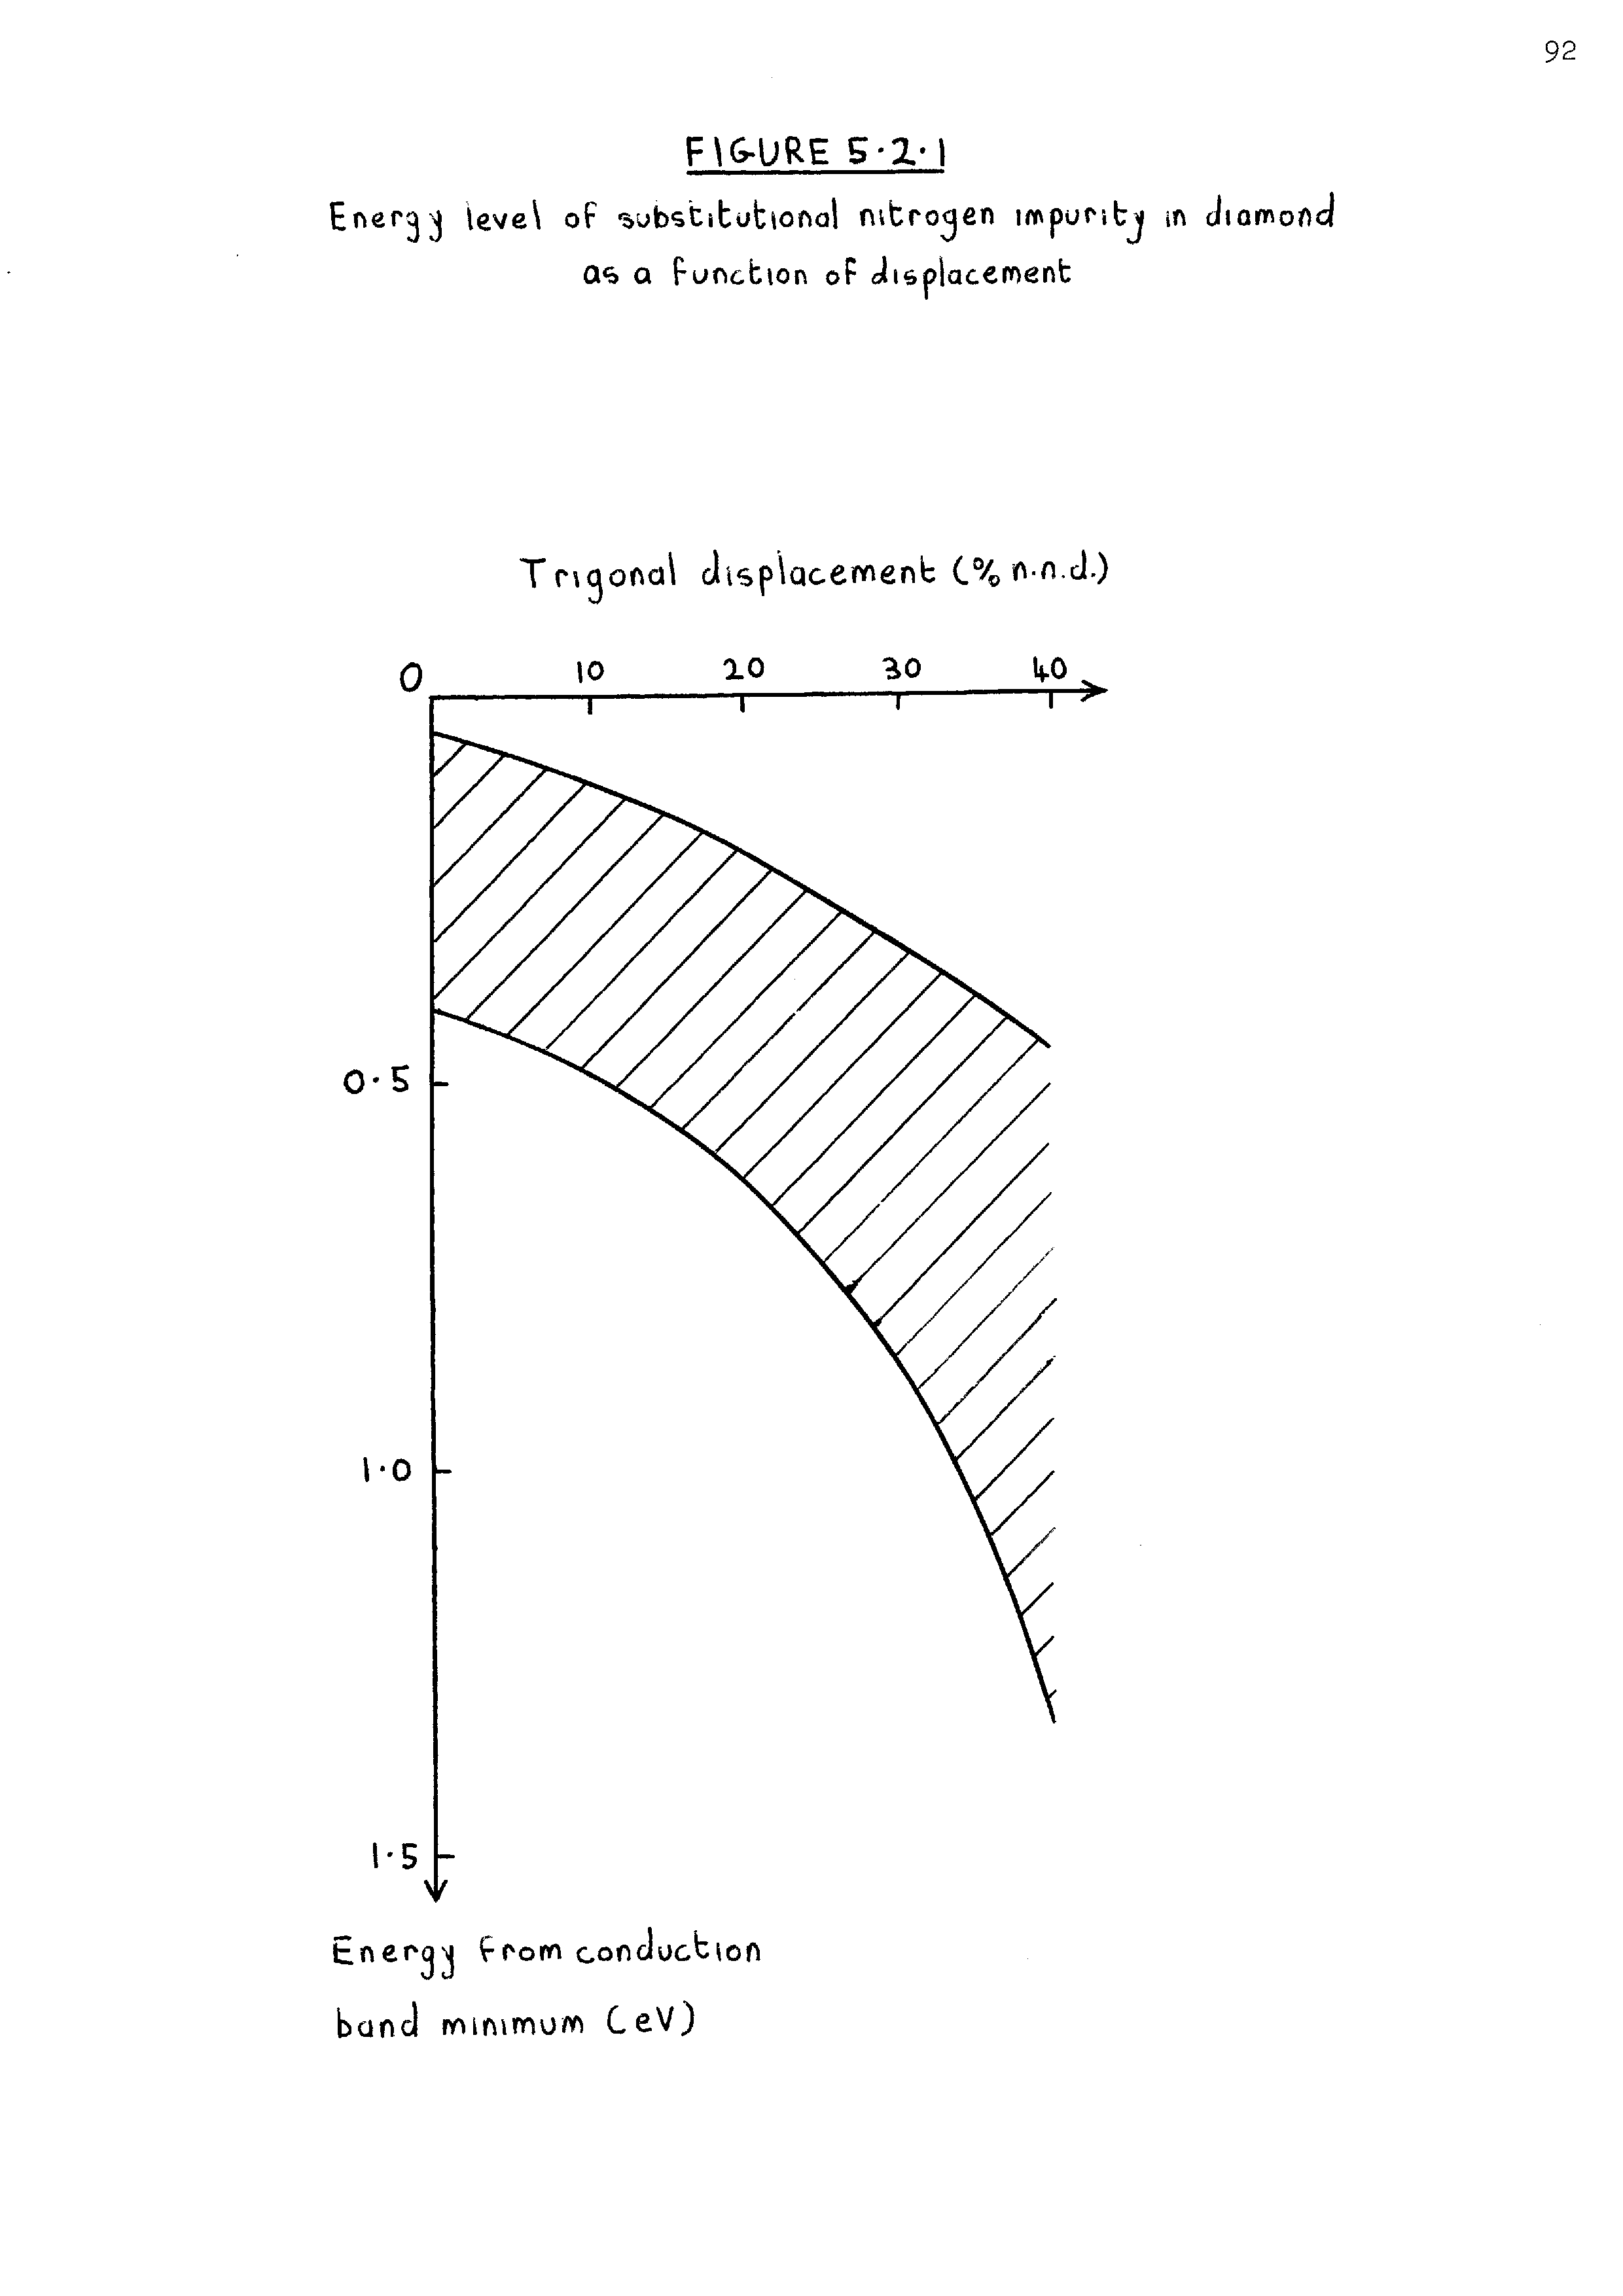 92
FIGURE 5·2·1
Energy level of substitutional nitrogen impurity in diamond
as a function of displacement
Trigonal displacement (% n.n.d.)
0 10 20 30 40
0·5
1·0
1·5
Energy from conduction
band minimum (eV)